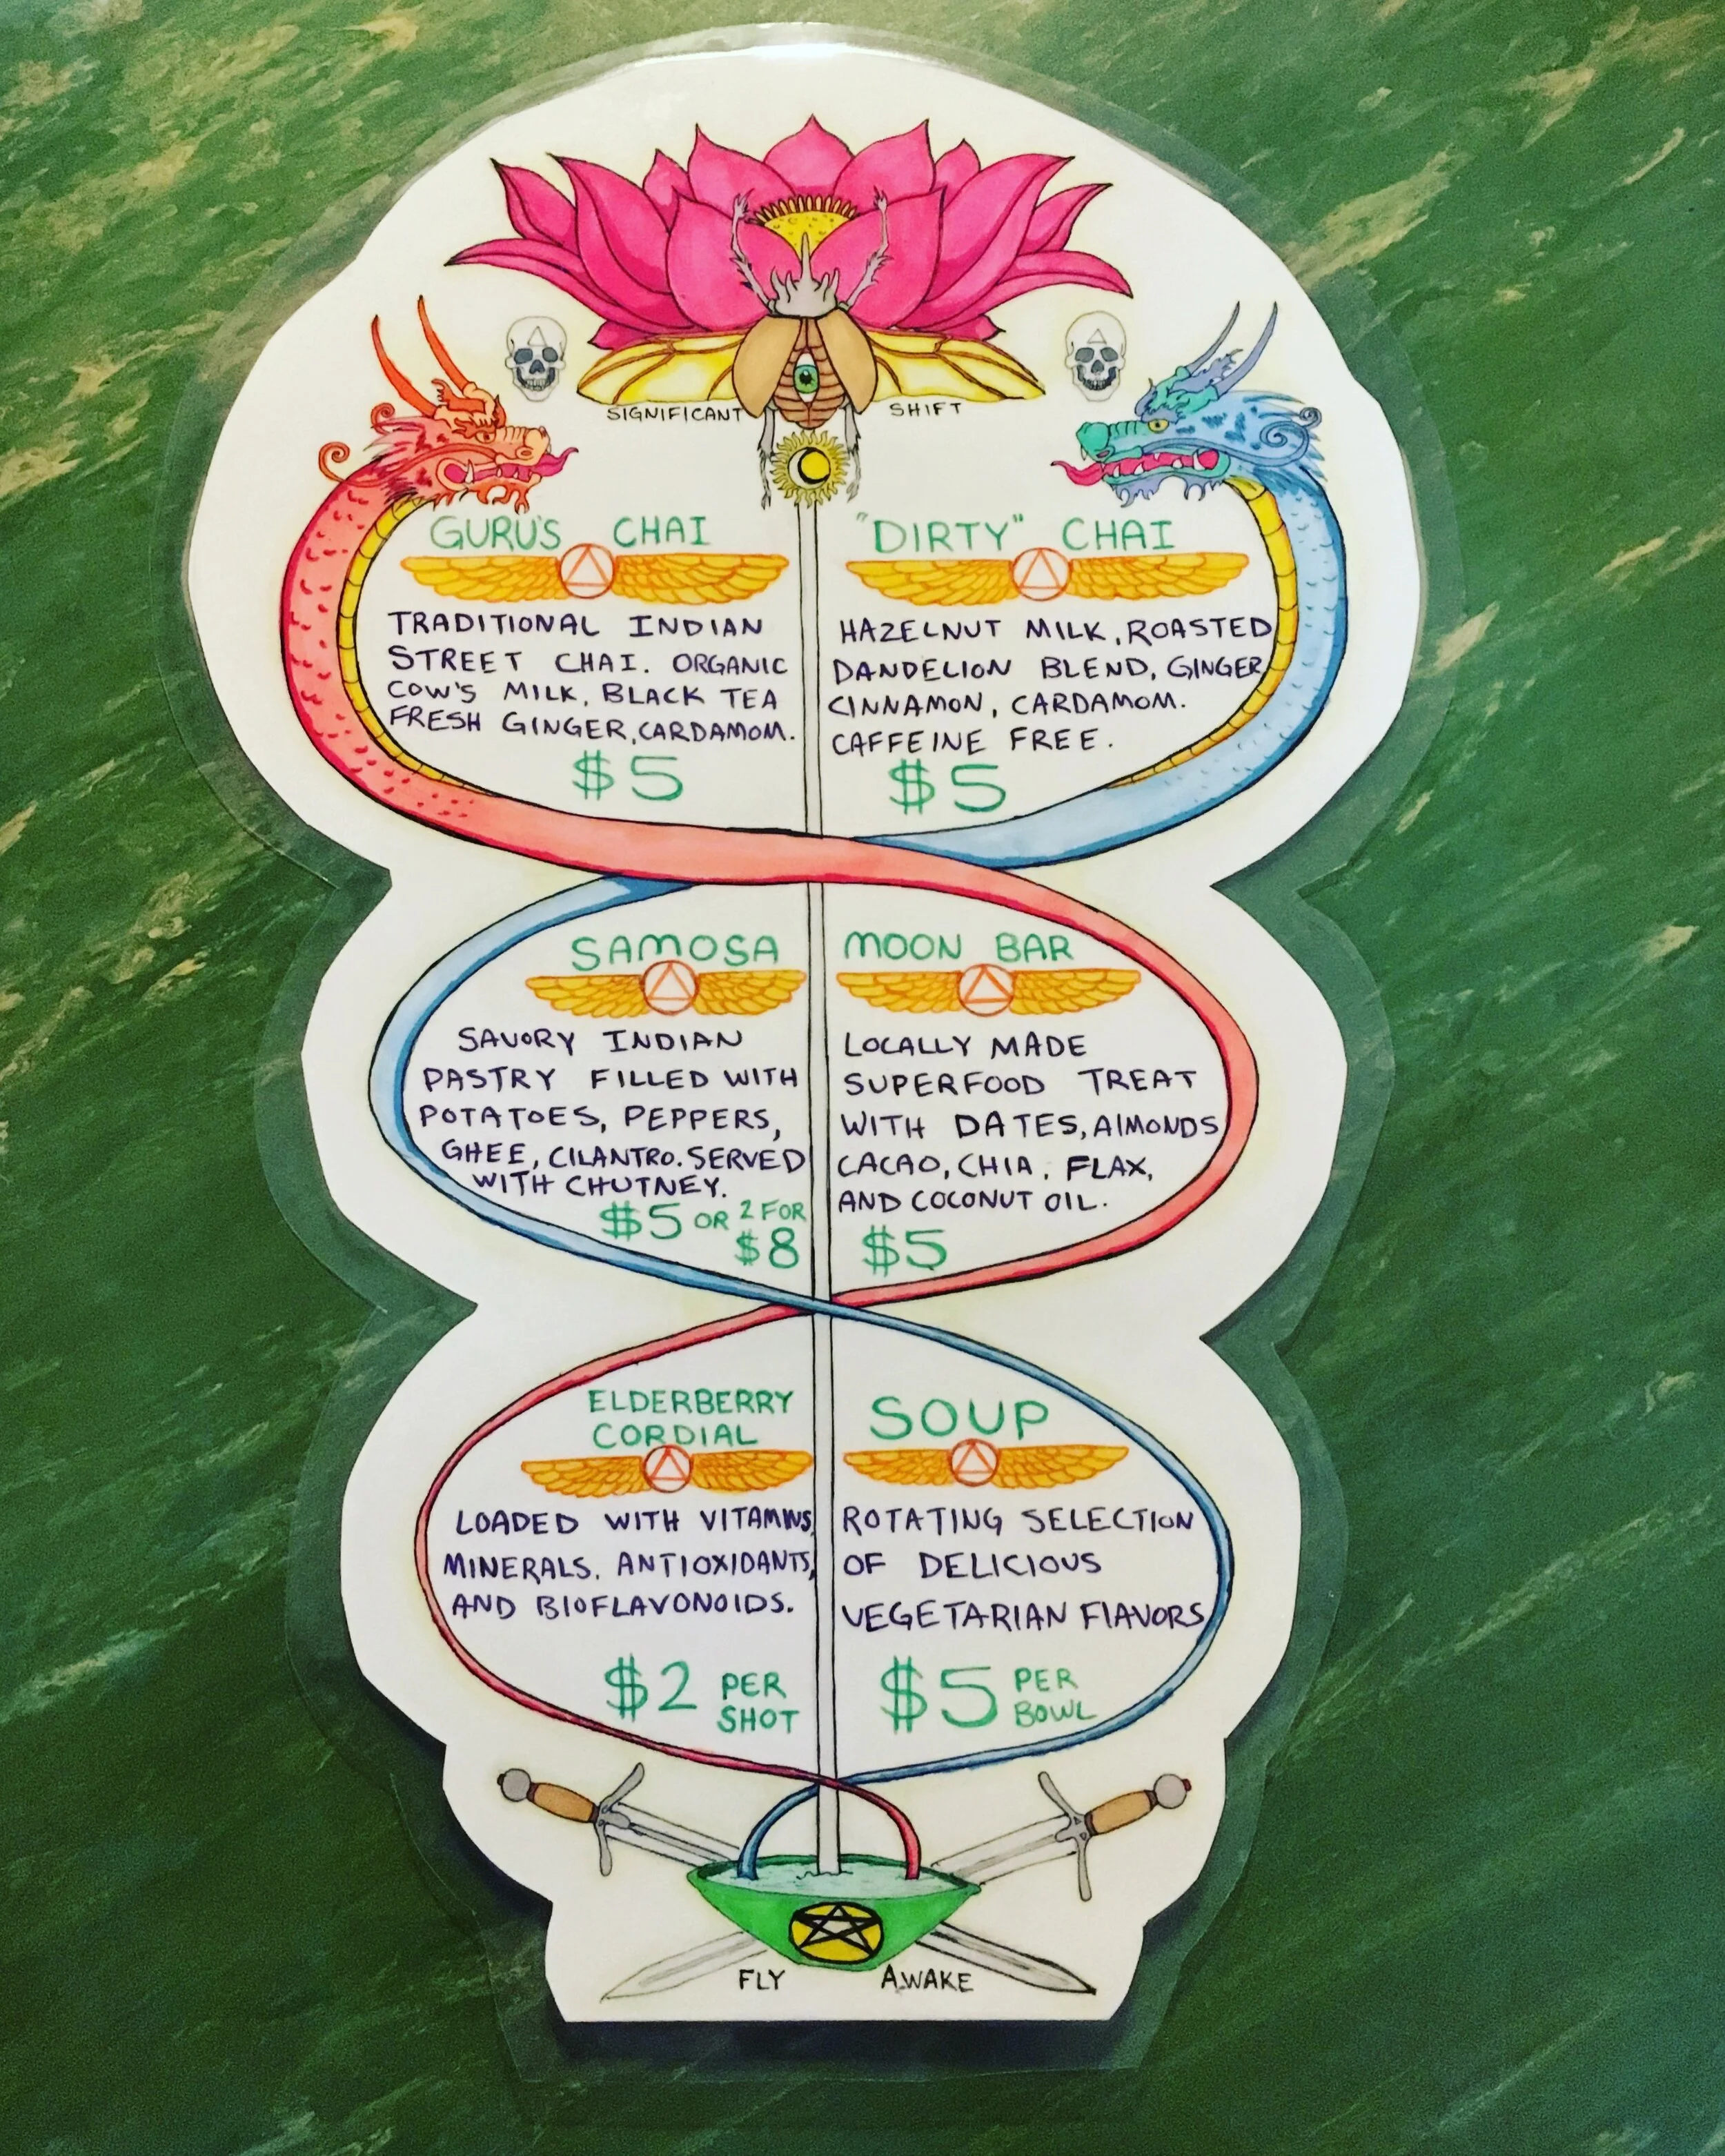 SIGNIFICANT SHIFT
GURU'S CHAI
TRADITIONAL INDIAN
STREET CHAI. ORGANIC
COW'S MILK, BLACK TEA
FRESH GINGER, CARDAMOM.
$5
"DIRTY" CHAI
HAZELNUT MILK, ROASTED
DANDELION BLEND, GINGER
CINNAMON, CARDAMOM.
CAFFEINE FREE.
$5
SAMOSA
SAVORY INDIAN
PASTRY FILLED WITH
POTATOES, PEPPERS,
GHEE, CILANTRO. SERVED
WITH CHUTNEY.
$5 OR 2 FOR
$8
MOON BAR
LOCALLY MADE
SUPERFOOD TREAT
WITH DATES, AlMONDS
CACAO, CHIA, FLAX,
AND COCONUT OIL.
$5
ELDERBERRY
CORDIAL
LOADED WITH VITAMINS,
MINERALS, ANTIOXIDANTS,
AND BIOFLAVONOIDS.
$2 PER
SHOT
SOUP
ROTATING SELECTION
OF DELICIOUS
VEGETARIAN FlAVORS
$5 PER
BOWL
FLY AWAKE